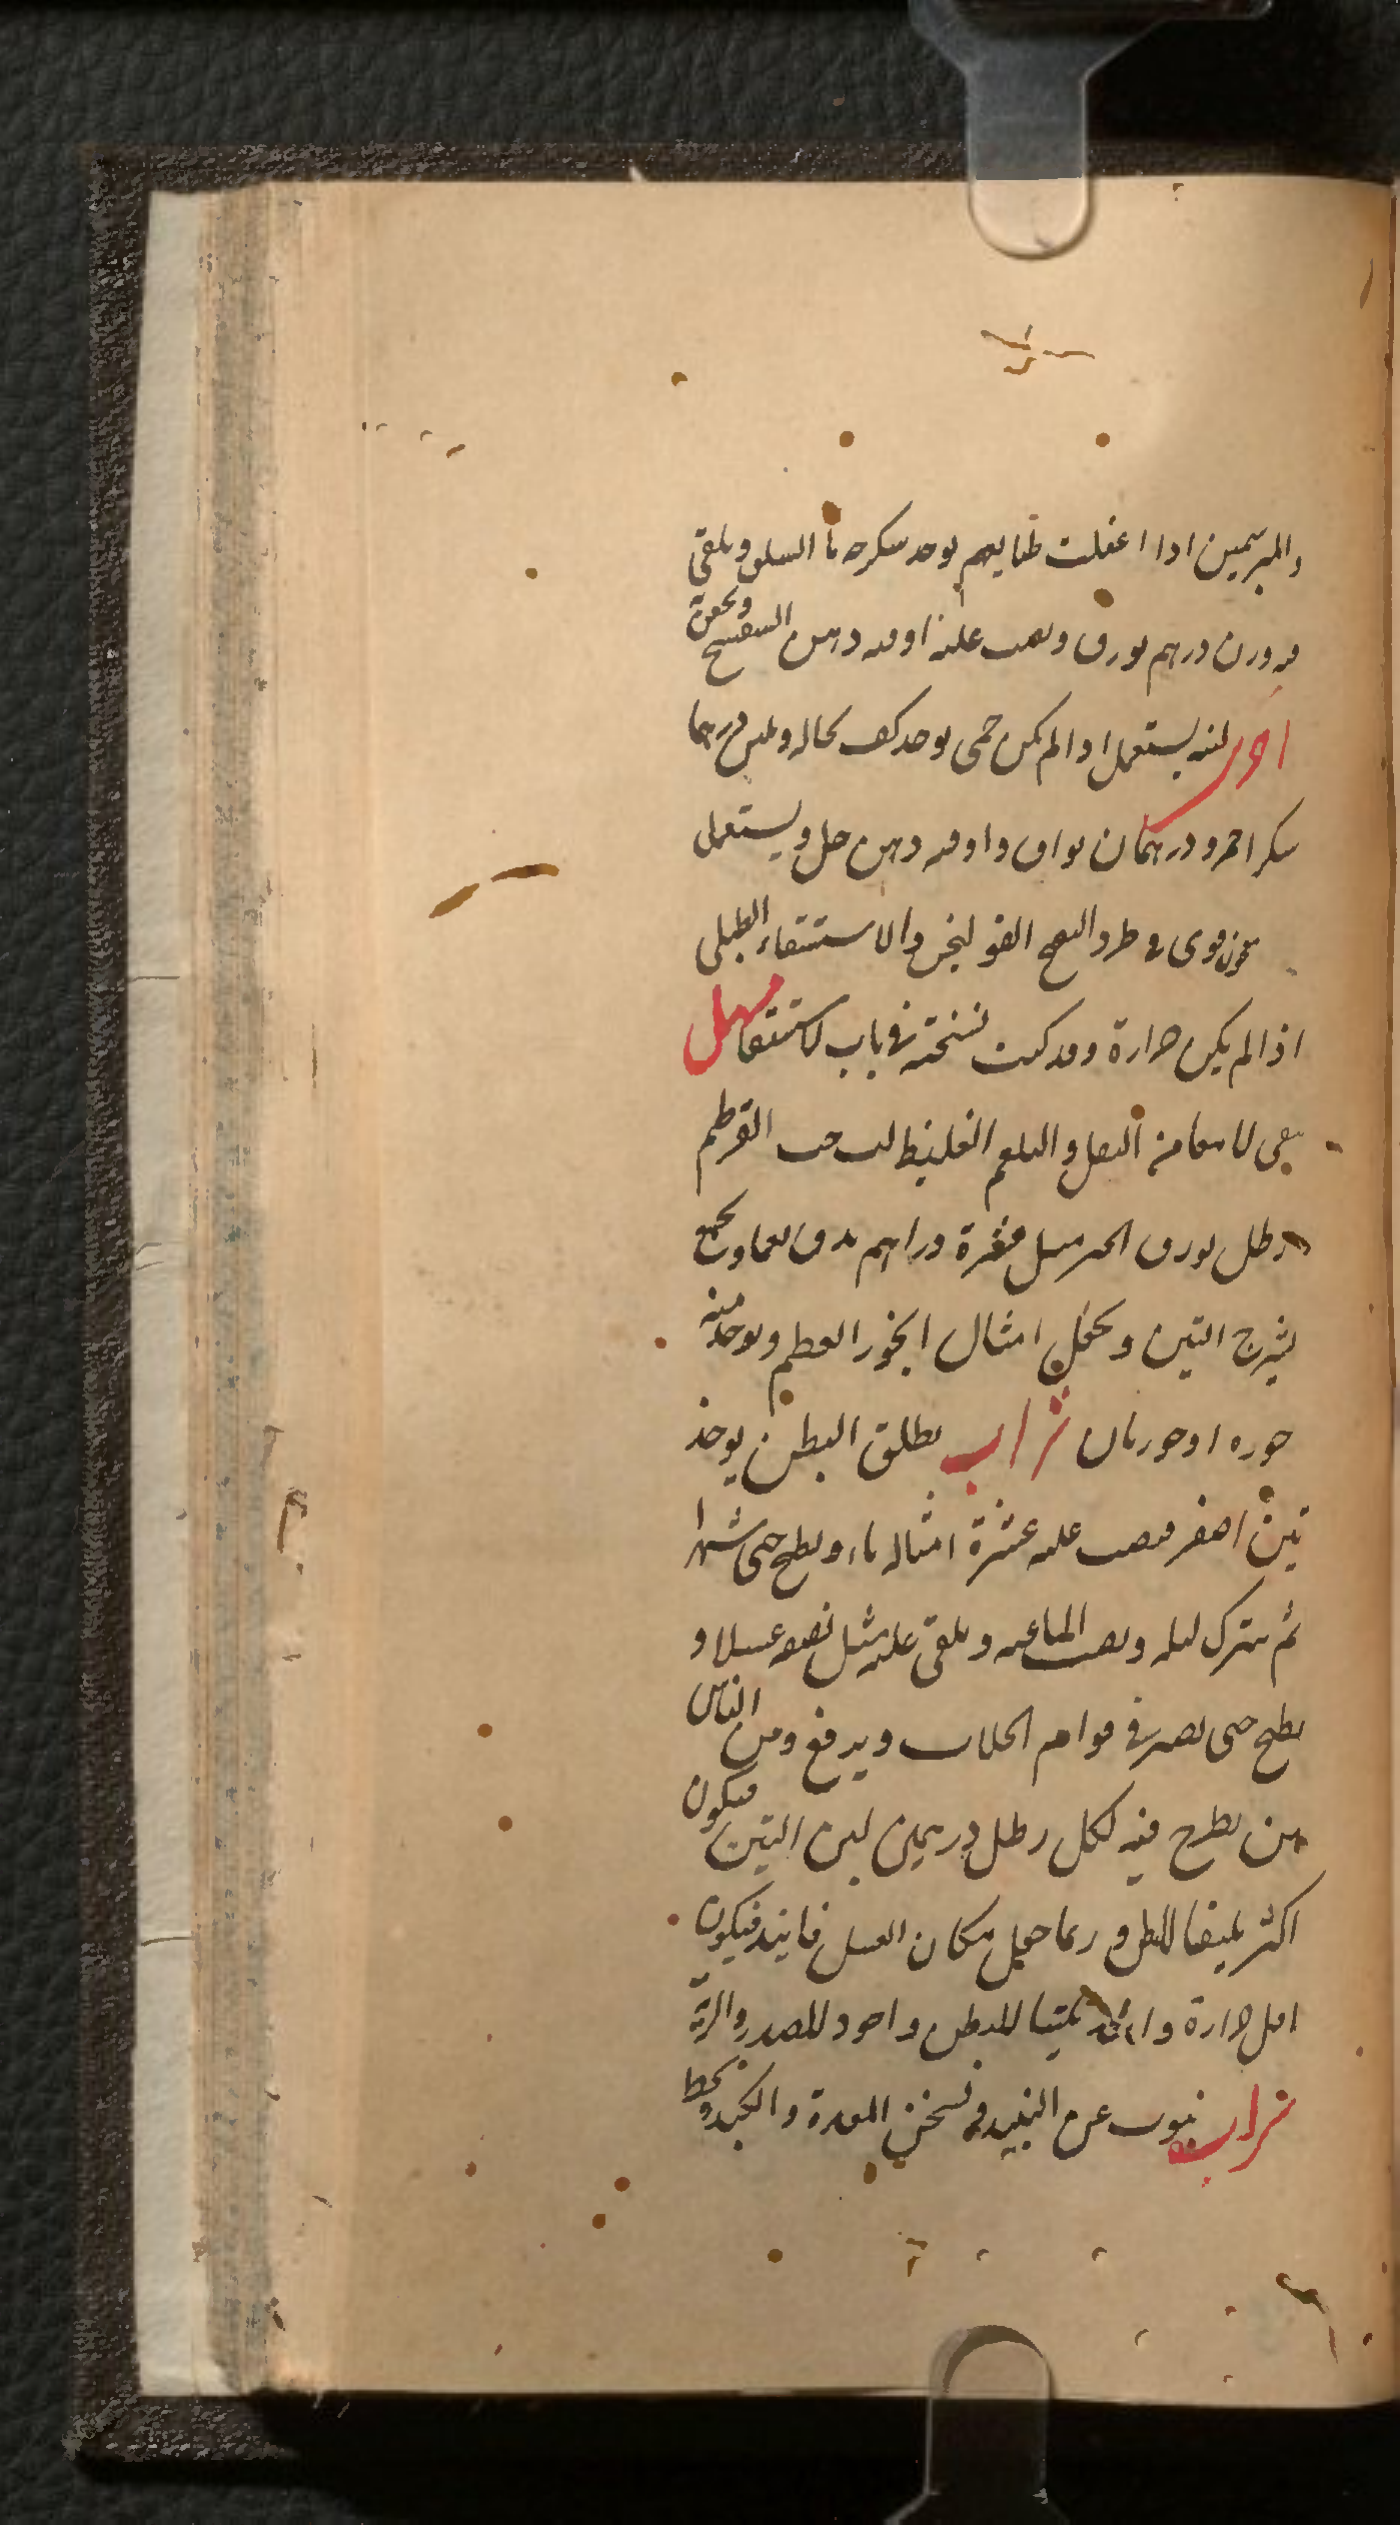 والمبرسمين اذا اعقلت طبايعهم يوخذ سكرجه ما السلق ويلقى
فيه وزن درهم بورق ويصب عليه اوقيه دهن البنفسج ويحقن
اخرى لينه يستعمل اذا لم يكن حمى يوخذ كف نخاله وثلثين درهما
سكر احمر ودرهمان بورق واوقيه دهن حل ويستعمل
قوى في طرد الريح القولنجى والاستسقاء الطبلى
اذا لم يكن حرارة وقد كتبت نسخته في باب الاستسقا مسهل
ينقى الامعا من الثفل والبلغم الغليظ لب حب القرطم
رطل بورق الخبز مثل عشرة دراهم يدق نعما ويجمع
بشيرج التين ويجعل امثال الجوز العظم ويوخذ منه
جوزه او جوزتان شراب يطلق البطن يوخذ
تين اصفر فيصب عليه عشرة امثاله ماء ويطبخ حتى يتهرا
ثم يترك ليله ويصب الما عنه ويلقى عليه مثل نصفه عسلا و
يطبخ حتى يصير في قوام الجلاب ويرفع ومن الناس
من يطرح فيه لكل رطل درهمين لبن التين فيكون
اكثر تليينا للبطن وربما جعل مكان العسل فانيد فيكون
اقل حرارة واشد تليينا للبطن واجود للصدر والرية
شراب ينوب عن النبيذ في تسخين المعدة والكبد